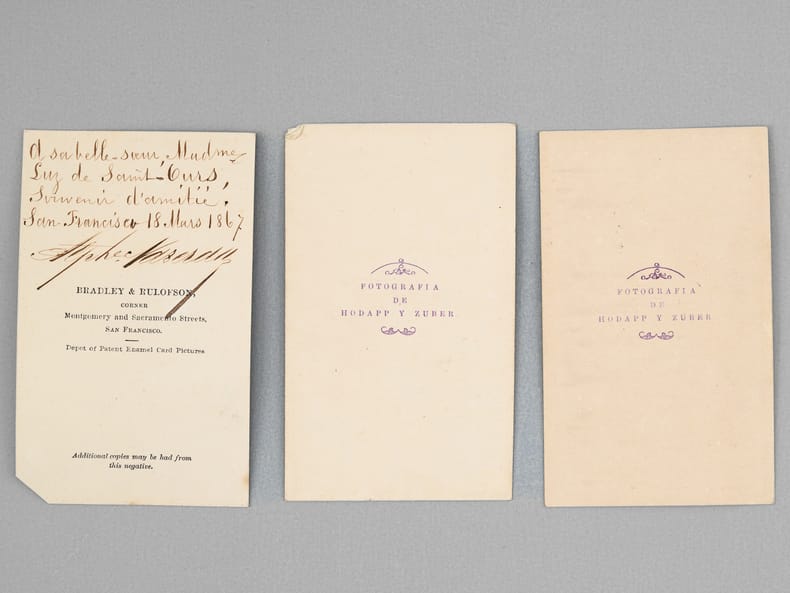 A sa belle-sœur, Madme
Luz de Saint-Ours,
Souvenir d'amitié.
San Francisco 18 Mars 1867
BRADLEY & RULOFSON,
CORNER
Montgomery and Sacramento Streets,
SAN FRANCISCO.
Depot of Patent Enamel Card Pictures
Additional copies may be had from
this negative.
FOTOGRAFIA
DE
HODAPP Y ZUBER
FOTOGRAFIA
DE
HODAPP Y ZUBER